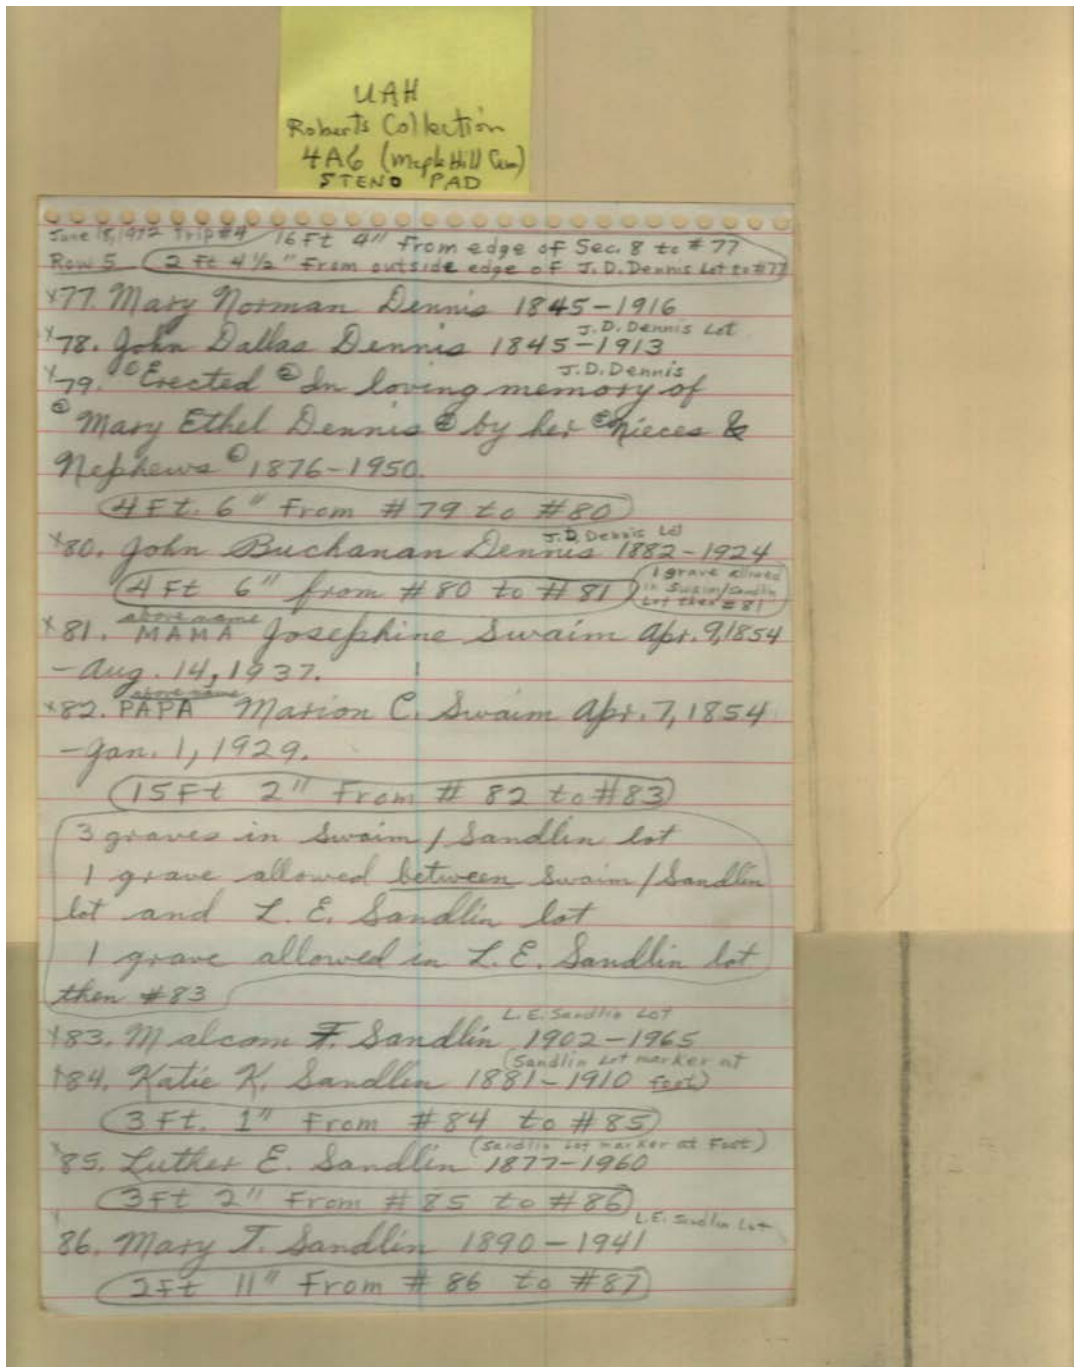 UAH
Roberts Collection
4A6 (Maple Hill Cem)
STENO PAD
June 18, 1972 Trip #4 16 Ft 4" from edge of Sec. 8 to #77
Row 5 2 Ft 4 1/2" From outside edge of J.D. Dennis Lot to #77
x77. Mary Norman Dennis 1845-1916
J.D. Dennis Lot
x78. John Dallas Dennis 1845-1913
J.D. Dennis
x79. ©Erected © In loving memory of
© Mary Ethel Dennis © by her © Nieces &
Nephews © 1876-1950.
4 Ft. 6" From #79 to #80
J.D. Dennis Lot
x80. John Buchanan Dennis 1882-1924
4 Ft 6" from #80 to #81
1 grave allowed
in Swaim/Sandlin
Lot then #81
above name
x81. MAMA Josephine Swaim Apr. 9, 1854
- Aug. 14, 1937.
above name
x82. PAPA Marion C. Swaim Apr. 7, 1854
- Jan. 1, 1929.
15 Ft 2" From # 82 to #83
3 graves in Swaim / Sandlin lot
1 grave allowed between Swaim / Sandlin
lot and L. E. Sandlin lot
1 grave allowed in L. E. Sandlin lot
then #83
L.E. Sandlin Lot
x83. Malcom F. Sandlin 1902-1965
(Sandlin Lot marker at
x84. Katie K. Sandlin 1881-1910 foot)
3 Ft. 1" From #84 to #85
(Sandlin Lot marker at Foot)
x85. Luther E. Sandlin 1877-1960
3 Ft 2" From #85 to #86
L.E. Sandlin Lot
x86. Mary T. Sandlin 1890-1941
2 Ft 11" From #86 to #87